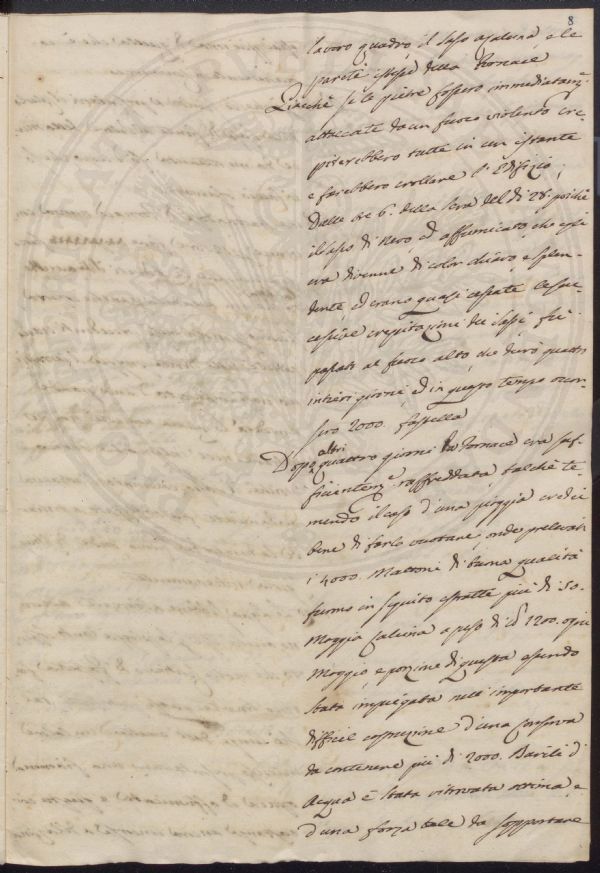 8
lavoro quadro, il sasso a calcina, e le
pareti istesse della Fornace
Giacchè se le pietre fossero immediatam.e
attaccate da un fuoco violento cre-
piterebbero tutte in un istante
e farebbero crollare l'Edifizio;
Dalle ore 6. della sera del dì 28. poichè
il sasso di nero, ed affumicato che egli
era divenne di color chiaro, e splen-
dente, ed erano quasi cessate le suc-
cessive crepitazioni dei sassi, fui
passato al fuoco alto, che durò quattro
intieri giorni, ed in questo tempo occor-
sero 2000. fastella
Dopo altri quattro giorni la Fornace era suf-
ficientem.e raffreddata talchè te-
mendo il caso d'una pioggia credei
bene di farla vuotare; onde prelevati
i 4000. Mattoni di buona qualità
furono in seguito estratte più di 50.
Moggia calcina a peso di 1200. ogni
Moggio, e porzione di questa essendo
stata impiegata nell'importante
difficil costruzione d'una conserva
da contenere più di 2000. Barili d'
Acqua è stata ritrovata ottima, e
d'una forza tale da sopportare